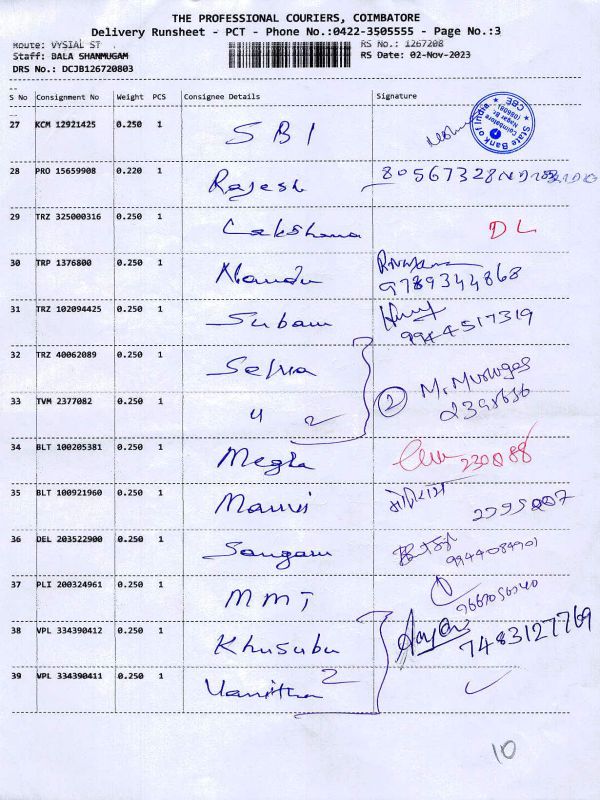 THE PROFESSIONAL COURIERS, COIMBATORE
Delivery Runsheet - PCT - Phone No.:0422-3505555 - Page No.:3
Route: VYSIAL ST .
RS No.: 1267208
Staff: BALA SHANMUGAM
RS Date: 02-Nov-2023
DRS No.: DCJB126720803
S No Consignment No Weight PCS Consignee Details Signature
27 KCM 12921425 0.250 1 SBI
State Bank of India
Coimbatore
CBE
28 PRO 15659908 0.220 1 Rajesh 80567328
29 TRZ 325000316 0.250 1 Lakshana DL
30 TRP 1376800 0.250 1 Nandu
9789344868
31 TRZ 102094425 0.250 1 Subam
9944517319
32 TRZ 40062089 0.250 1 Selva
33 TVM 2377082 0.250 1 " 2 2 M. Murugas
34 BLT 100205381 0.250 1 Megha 230888
35 BLT 100921960 0.250 1
36 DEL 203522900 0.250 1 Sangam
9944089901
37 PLI 200324961 0.250 1 MMT
38 VPL 334390412 0.250 1 Khusubu 7483127769
39 VPL 334390411 0.250 1 Vanitha 2
10